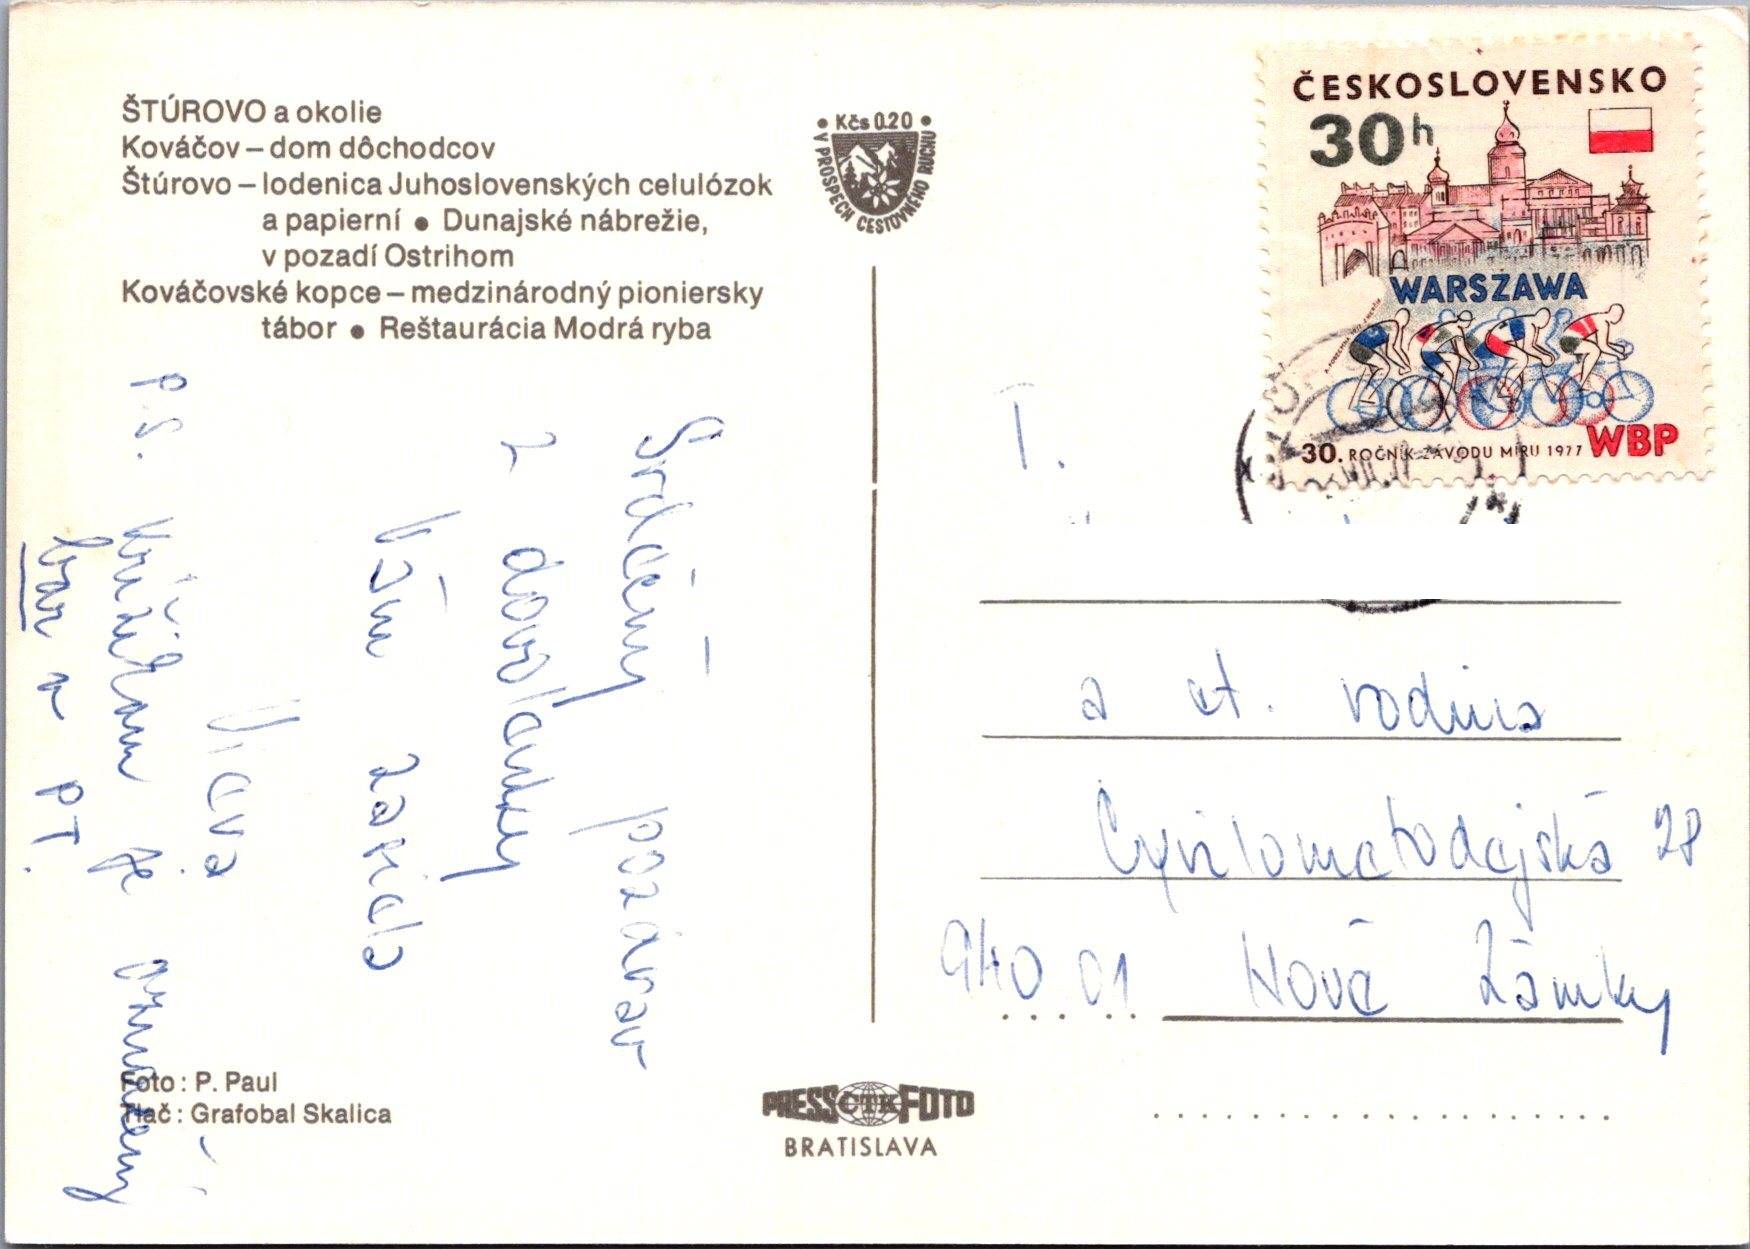 ŠTÚROVO a okolie
Kováčov – dom dôchodcov
Štúrovo – lodenica Juhoslovenských celulózok
a papierní ● Dunajské nábrežie,
v pozadí Ostrihom
Kováčovské kopce – medzinárodný pioniersky
tábor ● Reštaurácia Modrá ryba
• Kčs 0.20 •
V PROSPECH CESTOVNÉHO RUCHU
ČESKOSLOVENSKO
30h
WARSZAWA
30. ROČNÍK ZÁVODU MÍRU 1977 WBP
Srdečný pozdrav
z dovolenky
Vám
P.S. Krížikom je označený
bar v PT.
T.
a ct. rodina
Cyrilometodejská 28
940 01 Nové Zámky
Foto: P. Paul
Tlač: Grafobal Skalica
PRESS ČTK FOTO
BRATISLAVA